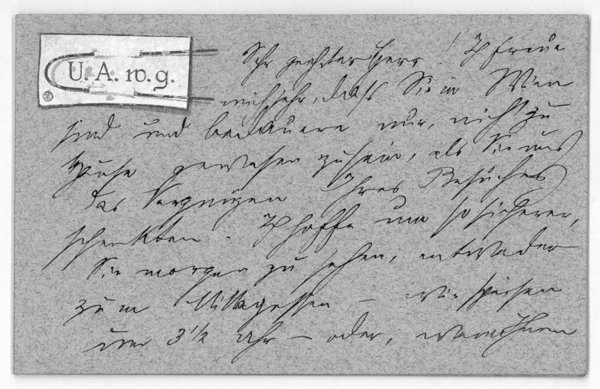 U. A. w. g.
Sehr geehrter Herr! Ich freue
mich sehr, daß Sie in Wien
sind und bedauere nur, nicht zu
Hause gewesen zu sein, als Sie uns
das Vergnügen Ihres Besuches
schenkten. Ich hoffe um so sicherer,
Sie morgen zu sehen, entweder
zum Mittagessen – wir speisen
um 3½ Uhr – oder, wenn Ihnen